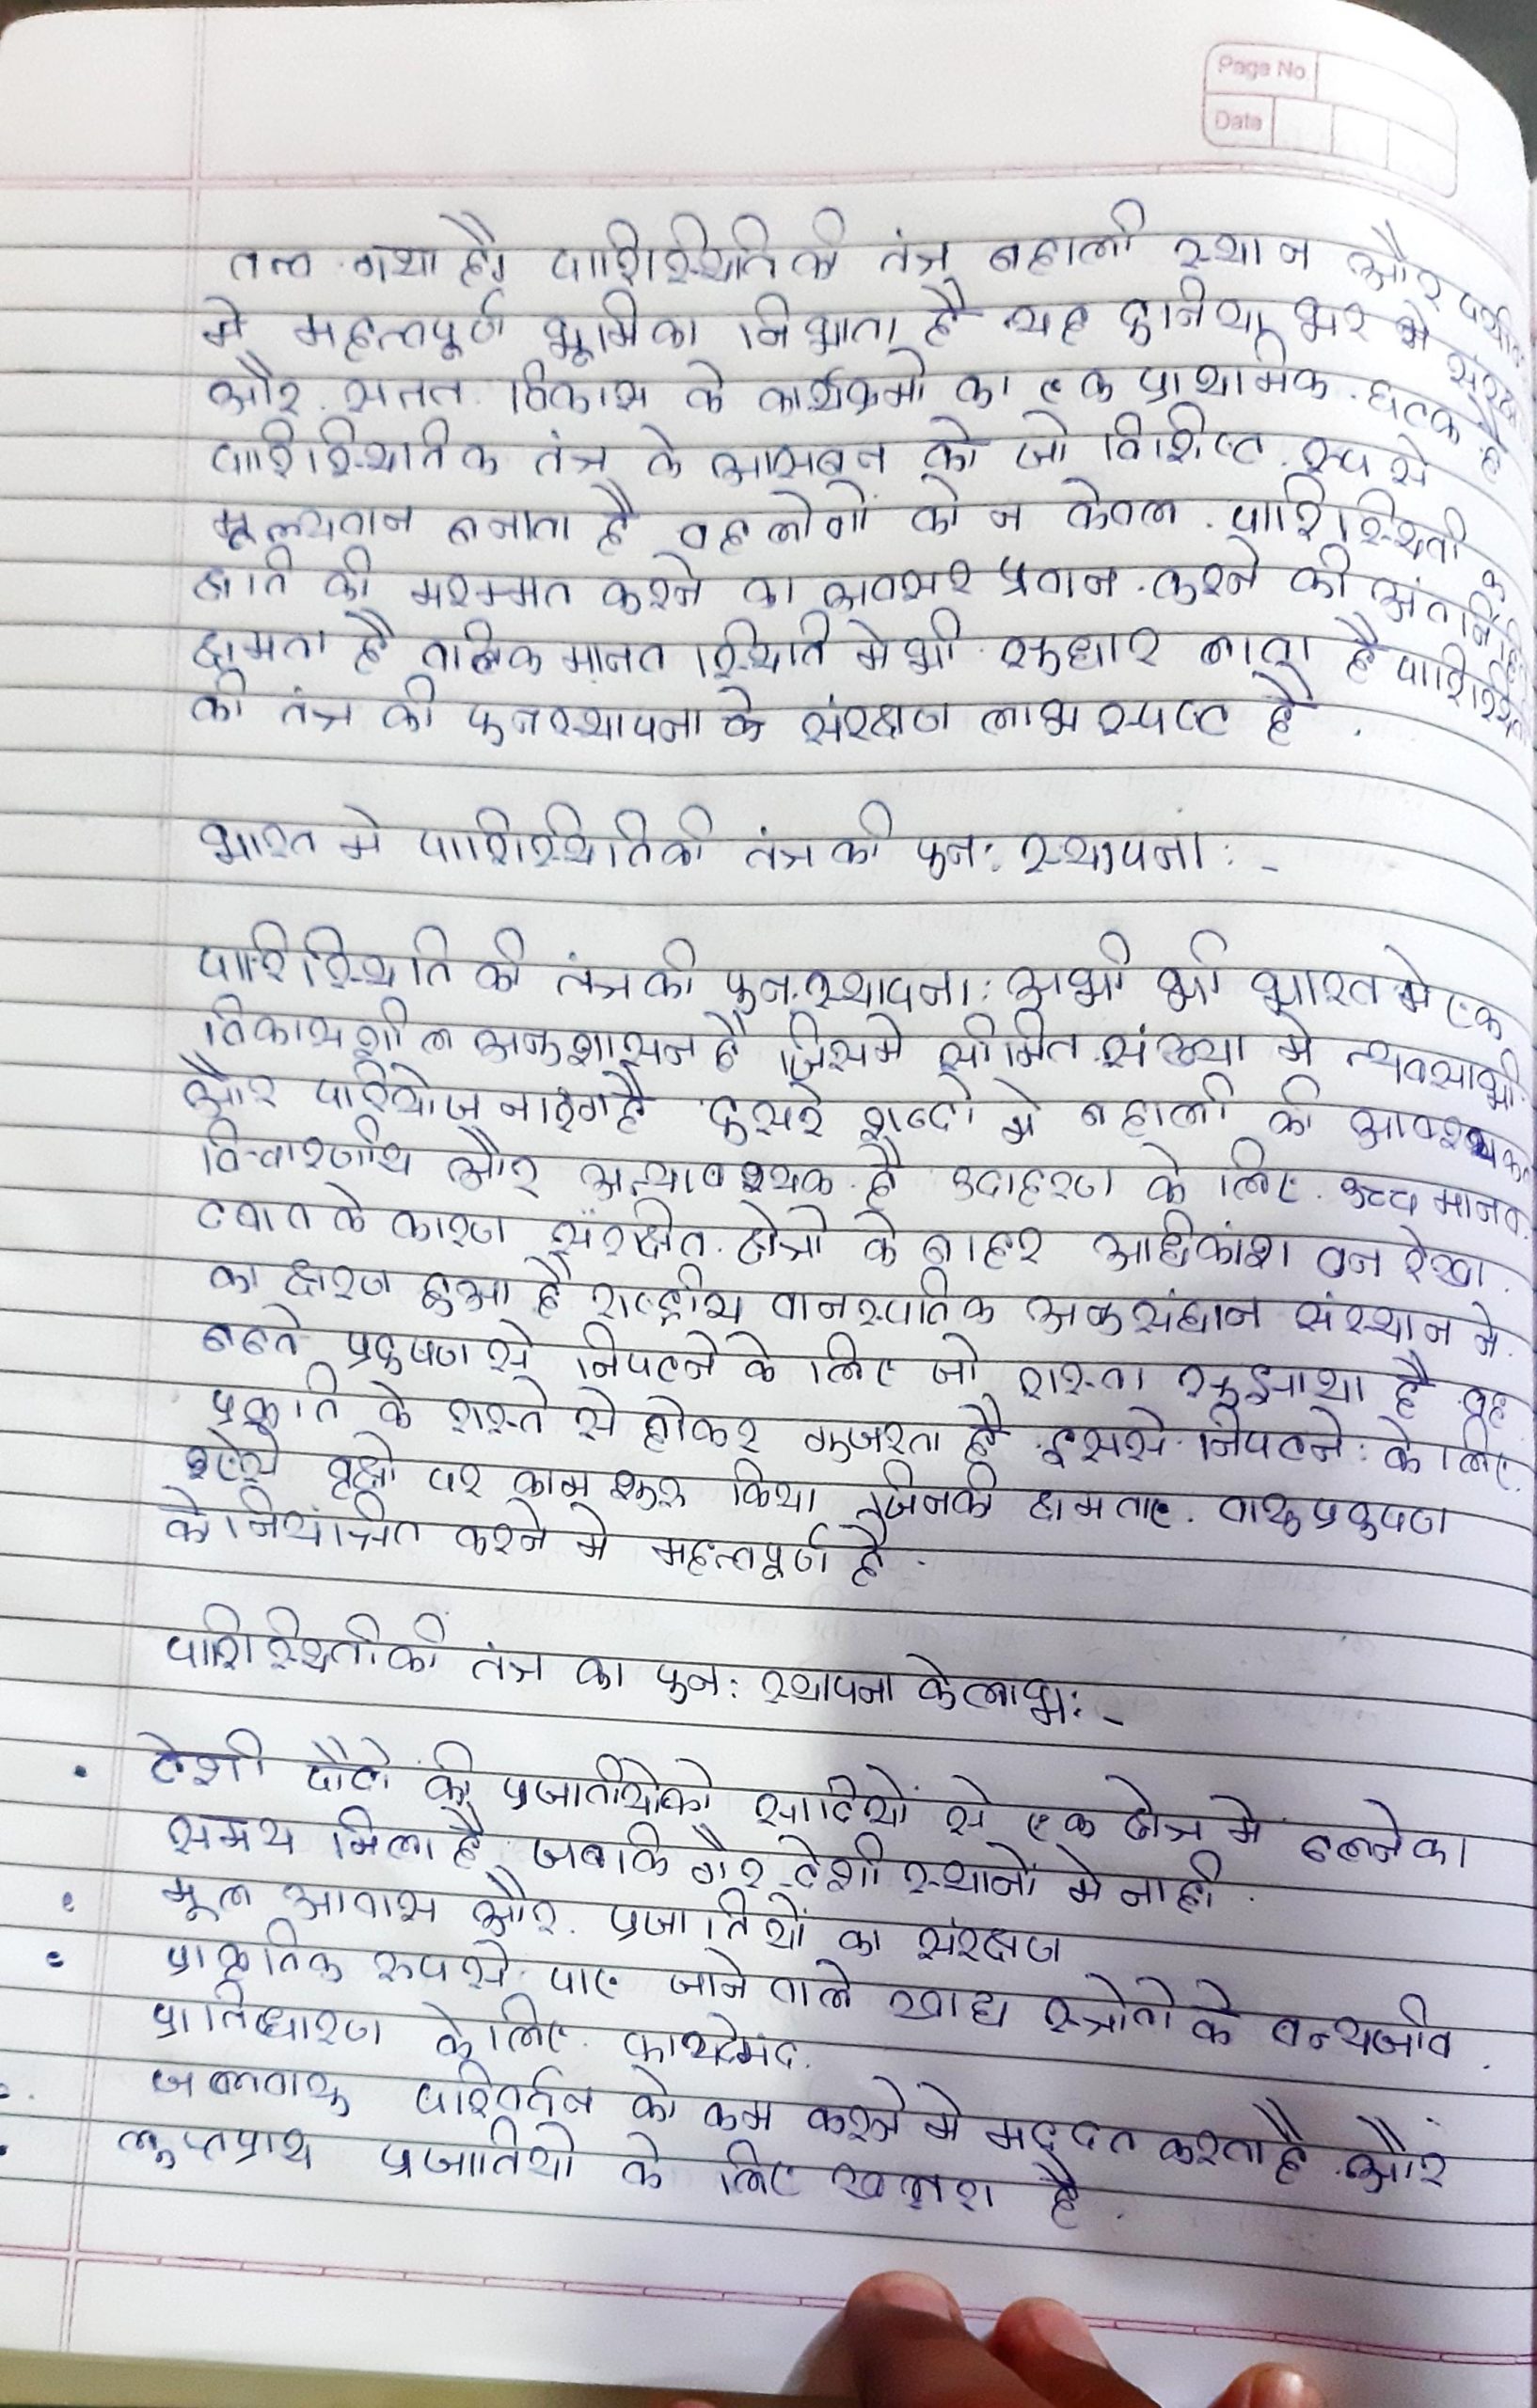 Page No.
Date
बन गया है। पारिस्थितिकी तंत्र बहाली स्थान और
मे महत्वपूर्ण भूमिका निभाता है यह दुनिया भर मे
और सतत विकास के कार्यक्रमो का एक प्राथमिक घटक है
पारिस्थितिक तंत्र के आसवन को जो विशिष्ट रूप से
मूल्यवान बनाता है वह लोगों को न केवल पारिस्थिती के
क्षति की मरम्मत करने का अवसर प्रदान करने की अंतर्निहित
क्षमता है बल्कि मानव स्थिति मे भी सुधार लाता है
की तंत्र की पुनस्थापना के संरक्षण लाभ स्पष्ट है
भारत मे पारिस्थितिकी तंत्र की पुन: स्थापना :-
पारिस्थिति की तंत्र की पुन:स्थापना: अभी भी भारत मे एक
विकासशील अनुशासन है जिसमे सीमित संख्या मे
और परियोजनाएं है दुसरे शब्दो मे बहाली की
विचारणीय और अत्यावश्यक है उदाहरण के लिए उच्च मानव
दबाव के कारण संरक्षित क्षेत्रो के बाहर अधिकांश वन रेखा
का क्षरण हुआ है राष्ट्रीय वानस्पतिक अनुसंधान संस्थान ने
बढते प्रदुषण से निपटने के लिए जो रास्ता सुझाया है वह
प्रकृति के रास्ते से होकर गुजरता है इससे निपटने के लिए
ऐसे वृक्षो पर काम शुरू किया जिनकी क्षमताए वायु प्रदुषण
को नियंत्रित करने मे महत्वपूर्ण है
पारिस्थिती की तंत्र का पुन: स्थापना के लाभ :-
• देशी पौधो की प्रजातीयोको सादियों से एक क्षेत्र मे ढलने का
समय मिला है जबकि गैर-देशी स्थानों मे नाही
• मूल आवास और प्रजातियों का संरक्षण
• प्राकृतिक रुप से पाए जाने वाले खाद्य स्त्रोतो के वन्यजीव
प्रतिधारण के लिए फायदेमंद
• जलवायु परिवर्तन को कम करने मे मद्दत करता है और
• लुप्तप्राय प्रजातियो के लिए खतरा है